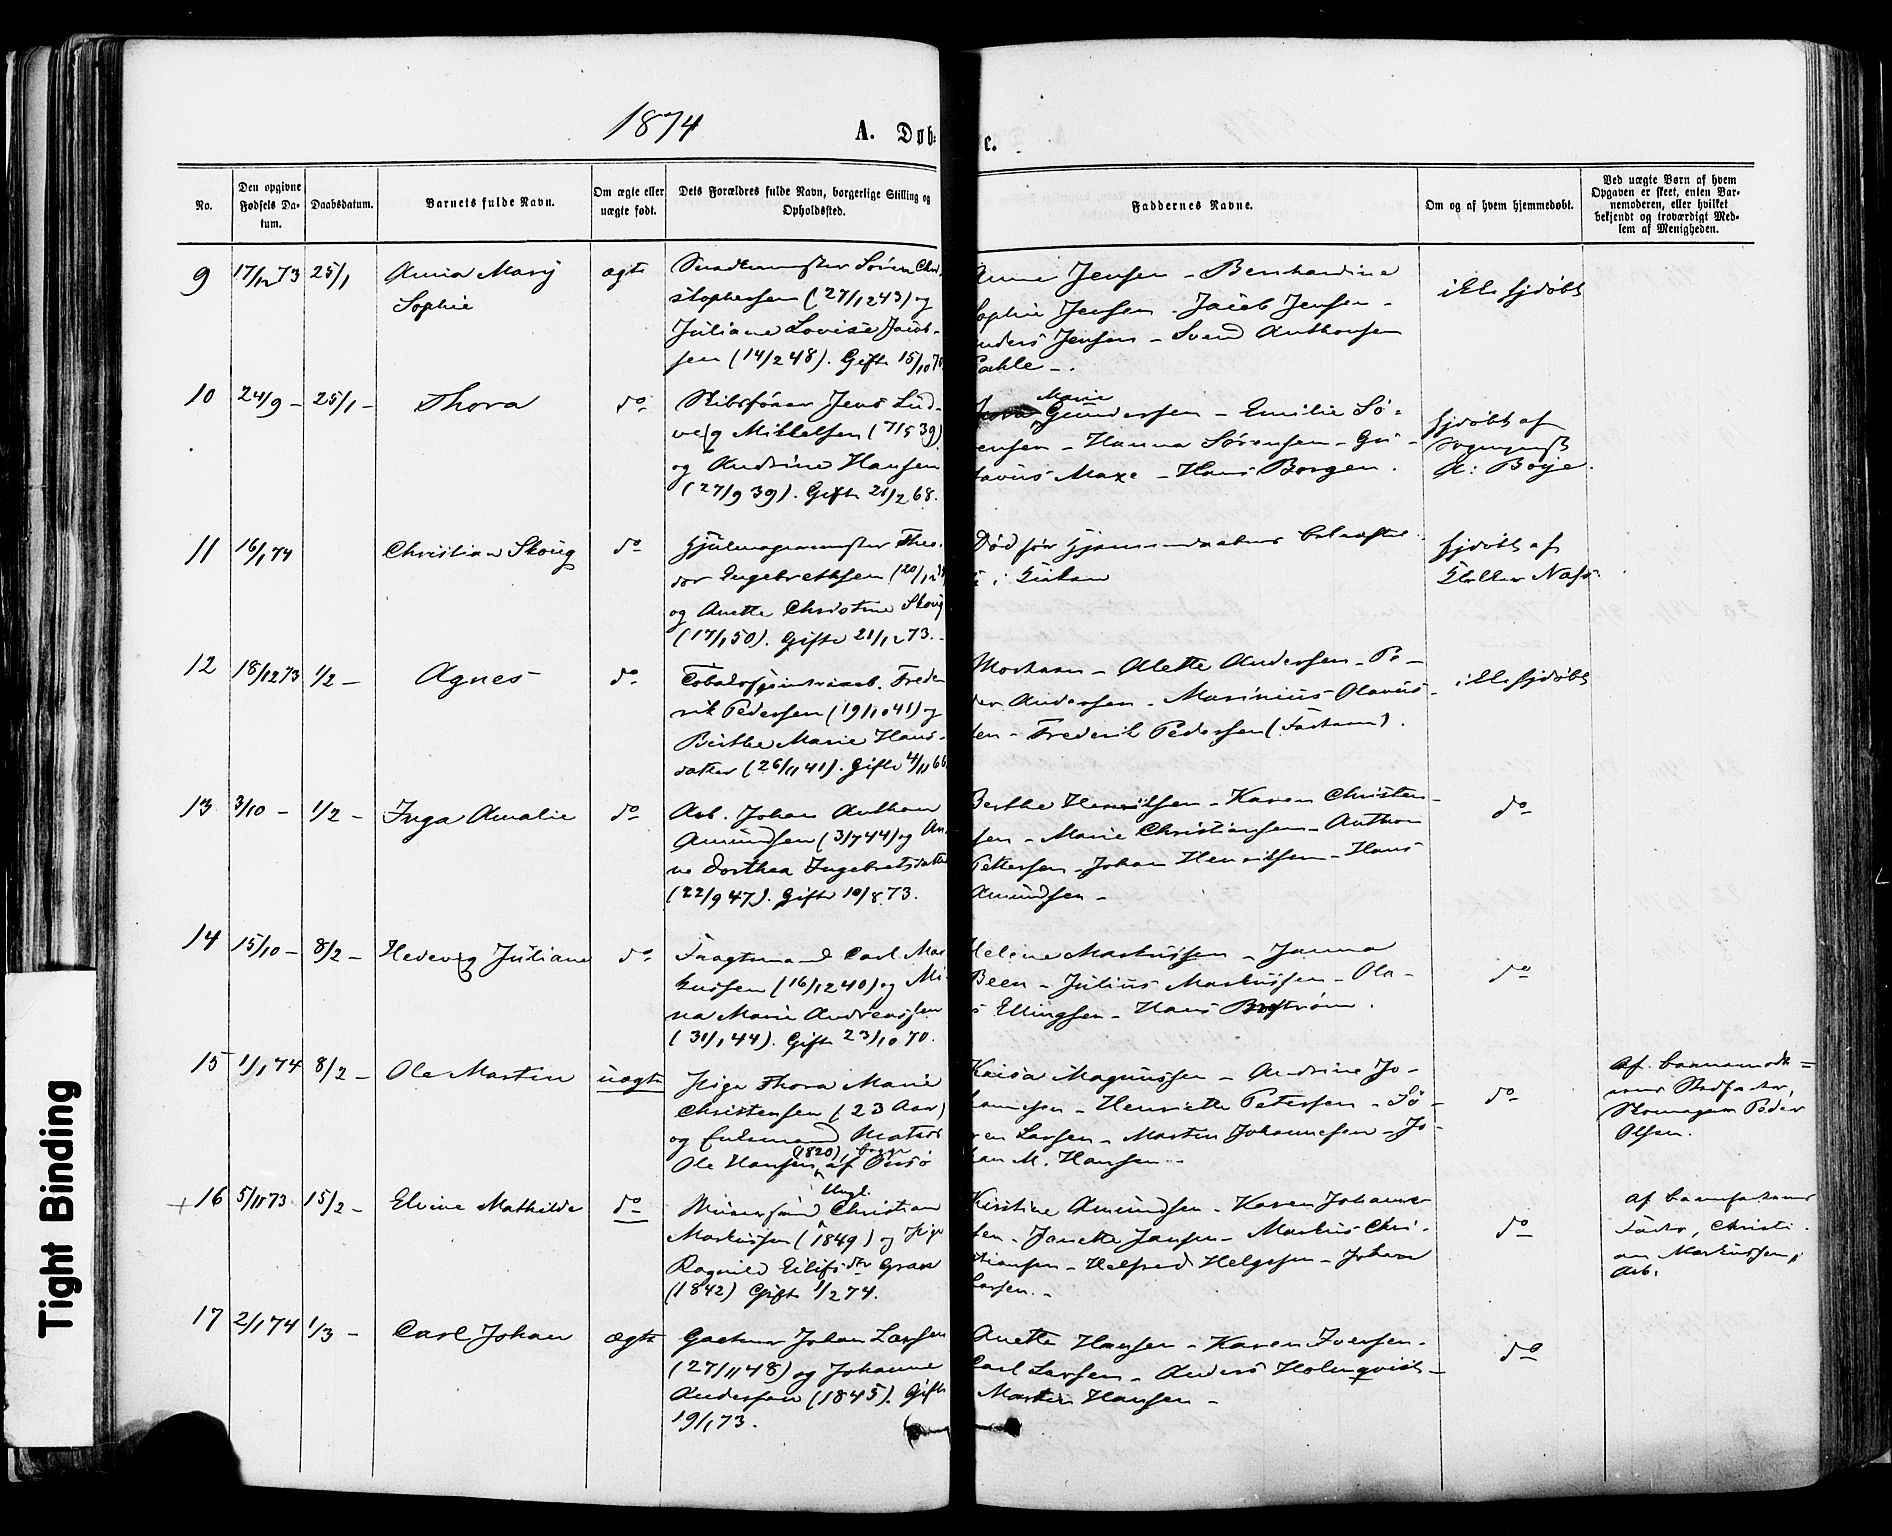 1874
A. Døb-
e.
No.
Den opgivne
Fødsels Da-
tum.
Daabsdatum.
Barnets fulde Navn.
Om ægte eller
uægte født.
Dets Forældres fulde Navn, borgerlige Stilling og
Opholdssted.
Faddernes Navne.
Om og af hvem hjemmedøbt.
Ved uægte Børn af hvem
Opgaven er skeet, enten Bar-
nemoderen, eller hvilket
bekjendt og troværdigt Med-
lem af Menigheden.
9
17/12 73
25/1
Anna Marij
Sophie
ægte
Snedkermester Søren Chri-
stophersen (27/12 43) og
Juliane Lovise Jacob-
sen (14/2 48). Gifte 15/10 70
Anne Jensen - Bernhardine
Sophie Jensen - Jacob Jensen -
Anders Jensen - Svend Anthonsen
ikke hjdøbt
10
24/9 -
25/1 -
Thora
do
Skibsfører Jens Lud-
vig Mikkelsen (7/5 39)
og Andrine Hansen
(27/9 39). Gifte 21/2 68.
Marie
Gundersen - Emilie Sø-
rensen - Hanna Sørensen - Gu-
stavus Maxe - Hans Borgen.
hjdøbt af
Sognepræst
A: Boye.
11
16/1 74
Christian Skoug
do
Hjulmagermester Theo-
dor Ingebrethsen (20/12
og Anette Christine Skoug
(17/1 50). Gifte 21/12 73.-
Død før Hjemmedaaben bekræfte-
i Kirken
hjdøbt af
Næss.
12
18/12 73
1/2 -
Agnes
do
Tobaksfabrikarb. Frede-
rik Pedersen (19/10 41) og
Berthe Marie Hans-
datter (26/11 41). Gifte 4/11 66
Moderen - Alette Andersen - Pe-
der Andersen - Marinius Olavus-
sen - Frederik Pedersen (Faderen).
ikke hjdøbt
13
3/10 -
1/2 -
Inga Amalie
do
Arb. Johan Anthon
Amundsen (3/7 44) og An-
ne Dorthea Ingebretsdatter
(22/9 47). Gifte 10/8 73.
Berthe Henriksen - Karen Christen-
sen - Marie Christiansen - Anthon
Pettersen - Johan Henriksen - Hans
Amundsen -
do
14
15/10 -
8/2 -
Hedevig Juliane
do
Fragtmand Carl Mar-
kussen (16/12 40) og Mi-
na Marie Andreassen
(31/1 44). Gifte 23/10 70.
Helene Markussen - Janna
Been - Julius Markussen - Ola-
s Ellingsen - Hans
do
15
1/1 74
8/2 -
Ole Martin
uægte
Pige Thora Marie
Christensen (23 Aar)
og Enkemand Matros
(1820), begge
Ole Hansen, af
Kaisa Magnussen - Andrine Jo-
hannesen - Henriette Petersen - Sø-
ren Larsen - Martin Johannesen - Jo-
han M. Hansen -
do
af Barnemode-
rens Stedfader,
Skomager Peder
Olsen.
+ 16
5/11 73
15/2 -
Elvine Mathilde
do
Ungk.
Murersvend Christian
Markussen (1849) og Pige
Ragnild Eilifsdtr Gran
(1842) Gifte 1/2 74.
Kirstine Amundsen - Karen Johanne-
sen - Janette Jansen - Markus Chri-
stiansen - Helfred Helgesen - Johan
Larsen. -
do
af Barnefaderens
Fader, Christi-
an Markussen,
Arb.
17
2/1 74
1/3 -
Carl Johan
ægte
Gartner Johan Larsen
(27/11 48) og Johanne
Andersen (1845). Gifte
19/1 73.
Anette Hansen - Karen Iversen -
Carl Larsen - Anders Holmqvist -
Martin Hansen -
do
Tight Binding